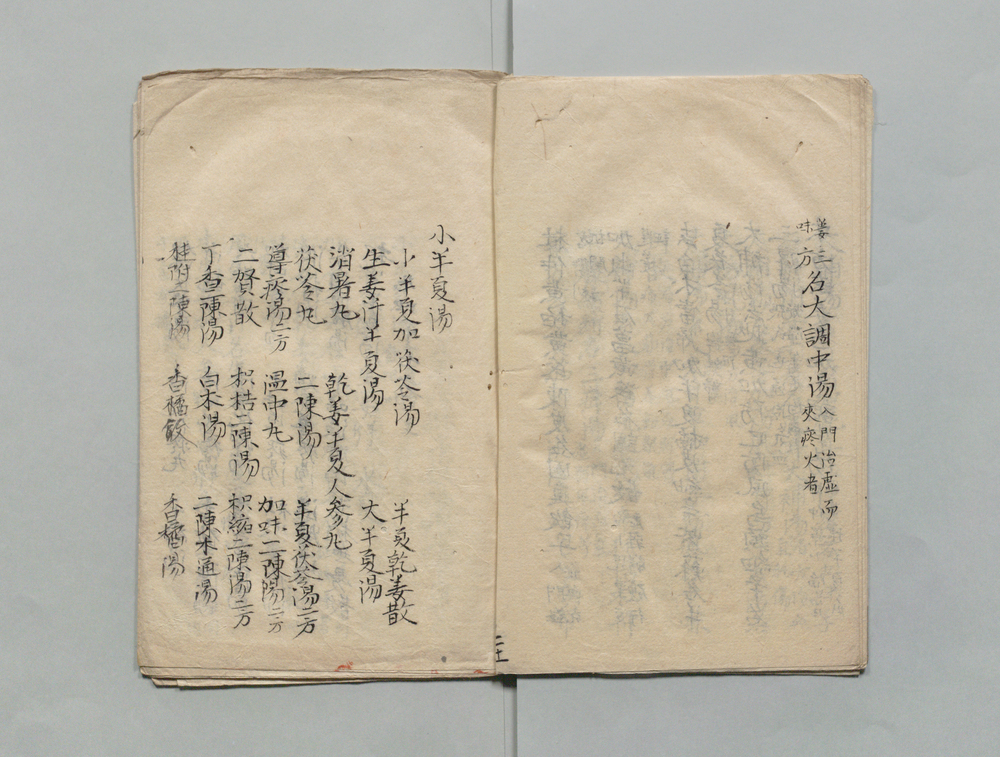 姜味方 三名大調中湯 入門治虛而夾痰火者
小半夏湯
小半夏加茯苓湯 半夏乾姜散
生姜汁半夏湯 大半夏湯
消暑丸 乾姜半夏人參丸
茯苓丸 二陳湯 半夏茯苓湯二方
導痰湯二方 溫中丸 加味二陳湯二方
二賢散 枳桔二陳湯 枳縮二陳湯二方
丁香二陳湯 白朮湯 二陳木通湯
桂附二陳湯 香橘飲 香橘湯
二十